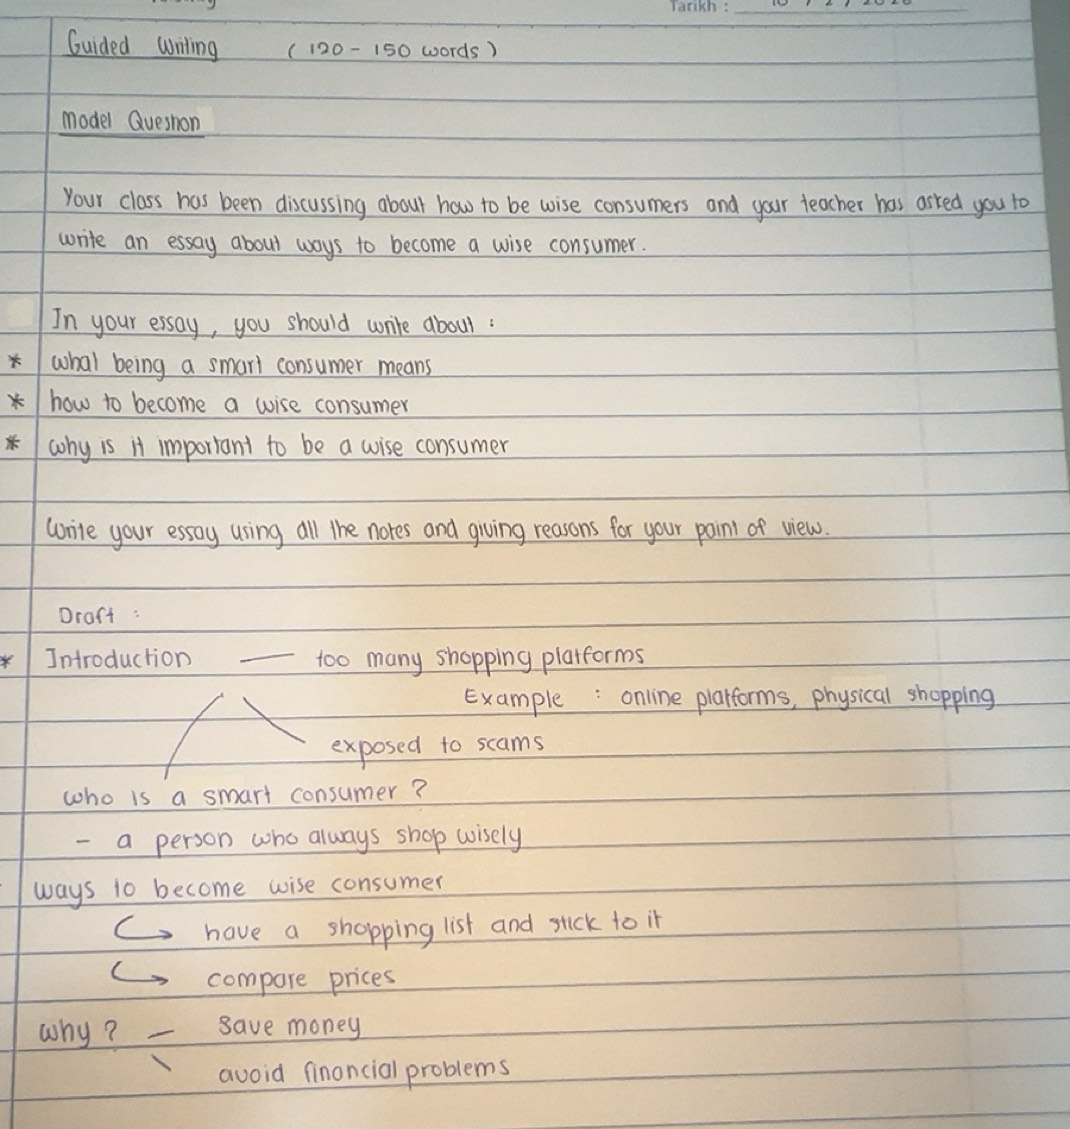 Tarikh :
Guided Writing (120 - 150 words)
Model Question
Your class has been discussing about how to be wise consumers and your teacher has asked you to
write an essay about ways to become a wise consumer.
In your essay, you should write about :
* what being a smart consumer means
* how to become a wise consumer
* why is it important to be a wise consumer
Write your essay using all the notes and giving reasons for your point of view.
Draft :
* Introduction — too many shopping platforms
Example : online platforms, physical shopping
exposed to scams
who is a smart consumer ?
- a person who always shop wisely
ways to become wise consumer
↪ have a shopping list and stick to it
↪ compare prices
why ? — save money
\ avoid financial problems